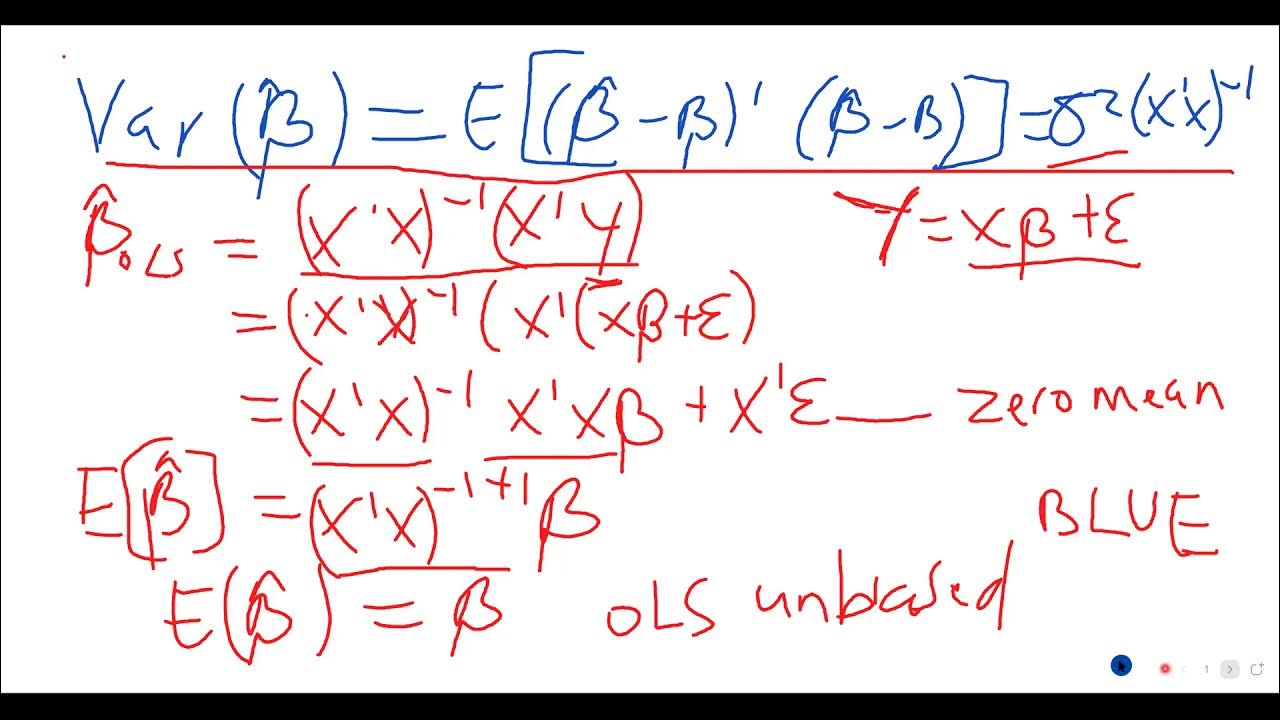 Var(β̂) = E[(β̂-β)' (β̂-β)] = σ²(X'X)⁻¹
β̂OLS = (X'X)⁻¹(X'Y) Y = Xβ+ε
= (X'X)⁻¹(X'(Xβ+ε)
= (X'X)⁻¹ X'Xβ + X'ε — zero mean
E[β̂] = (X'X)⁻¹⁺¹β BLUE
E(β̂) = β OLS unbiased
1